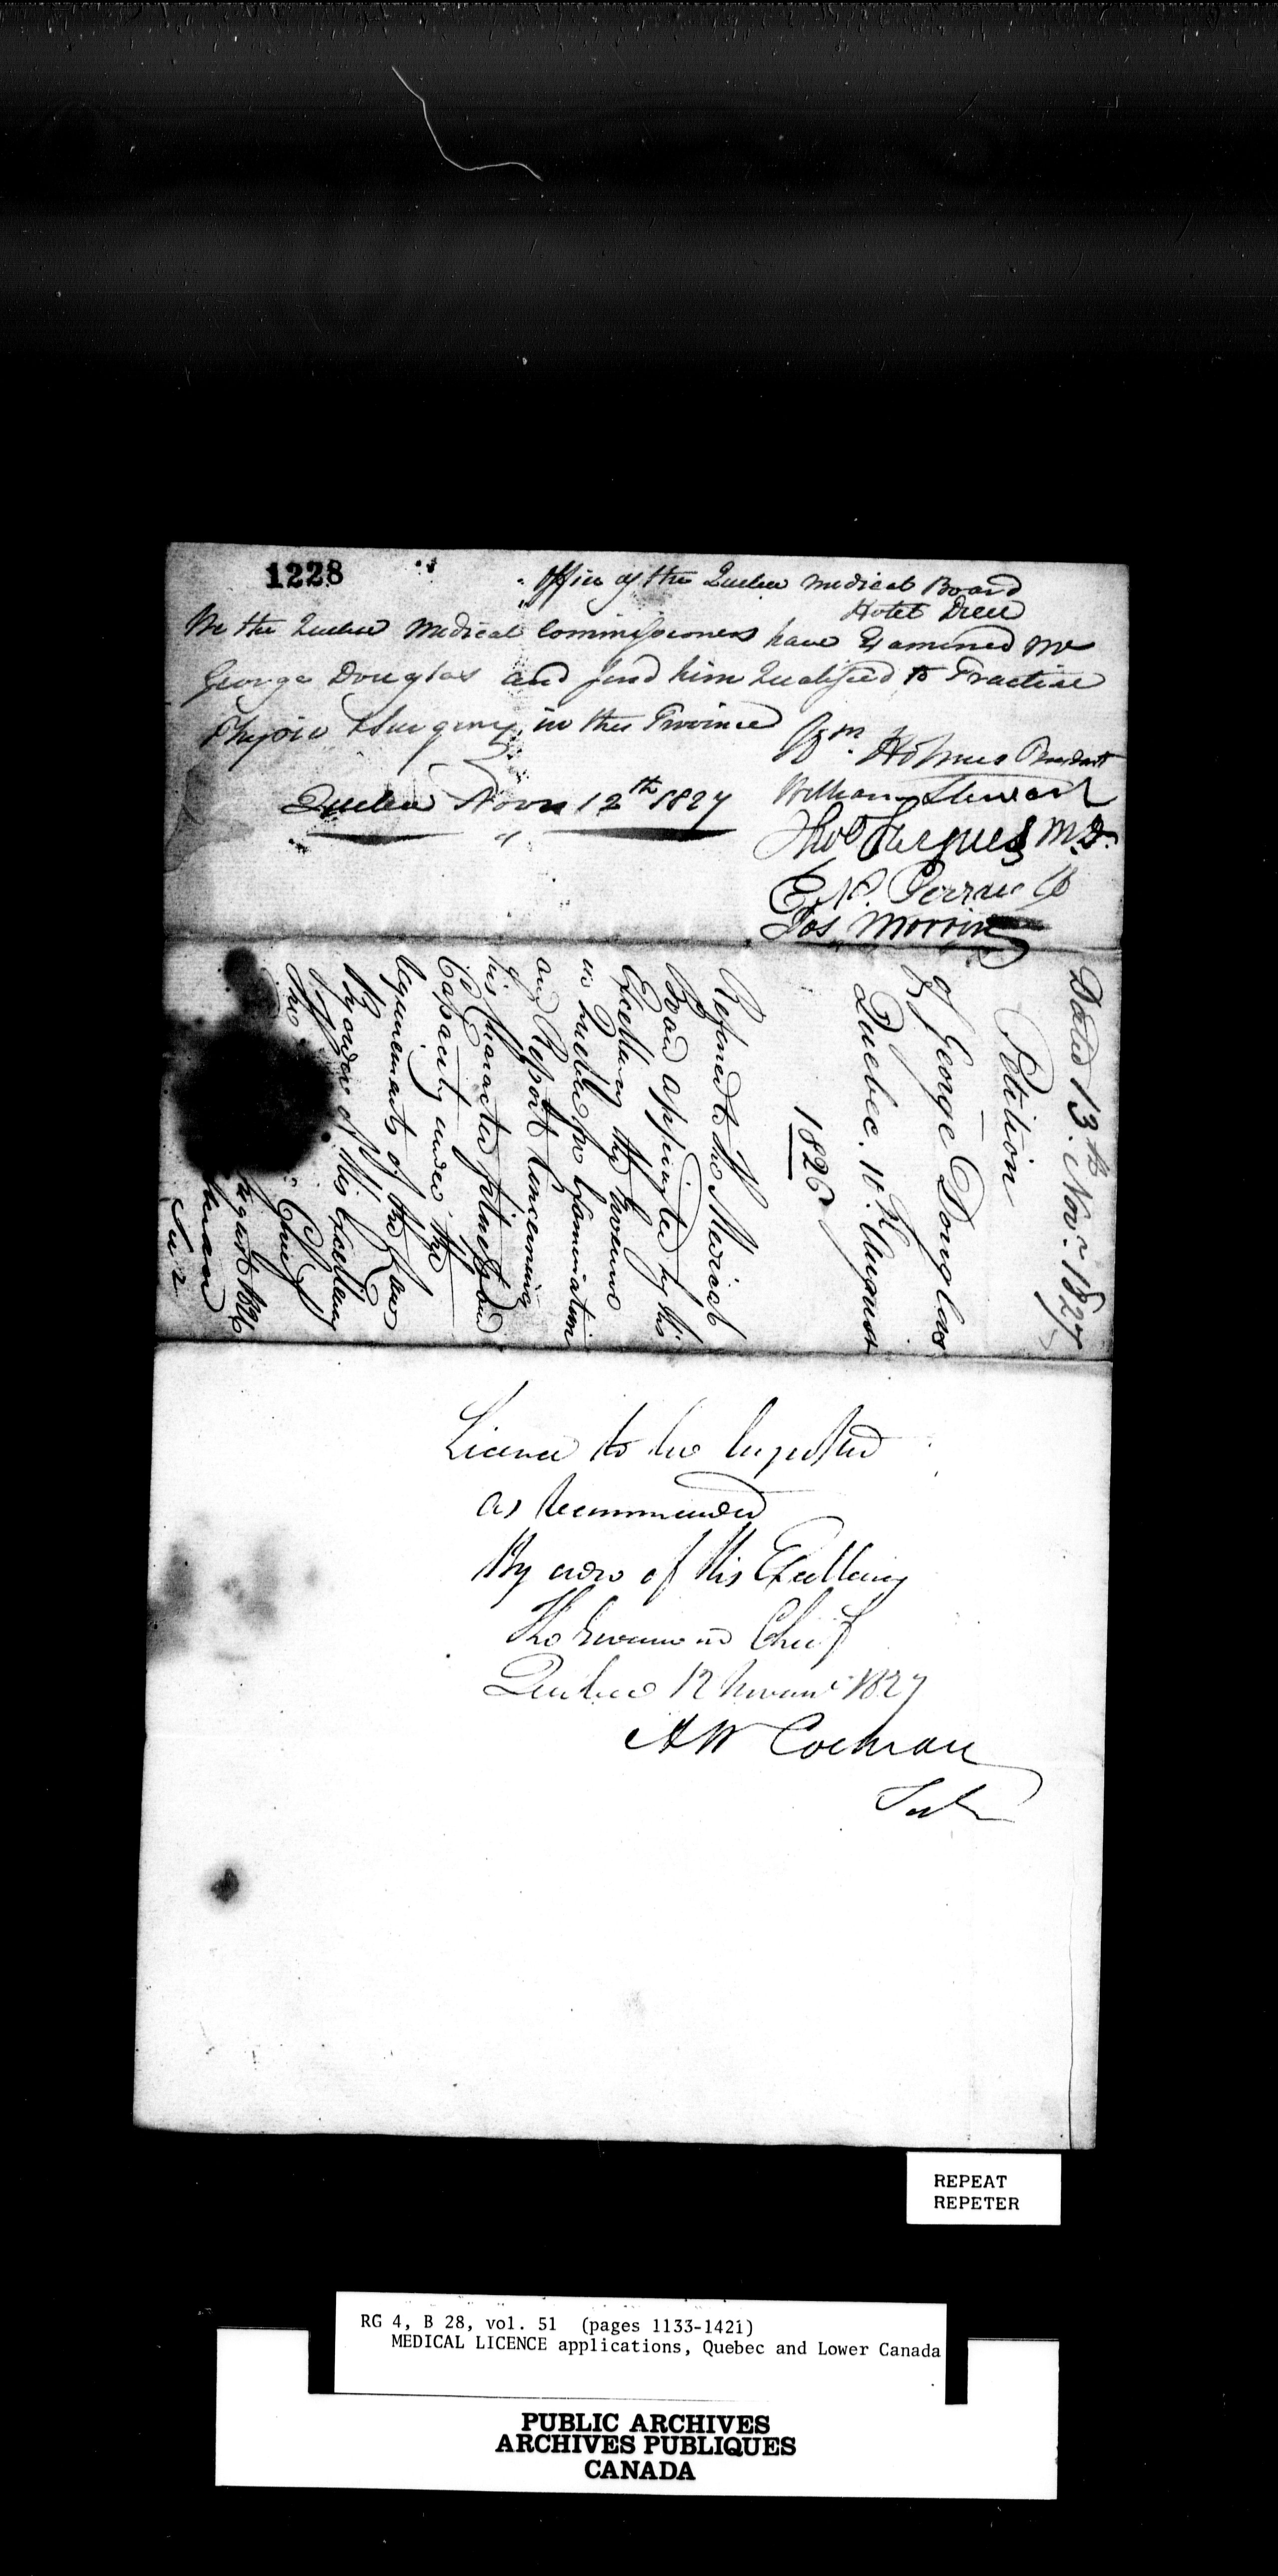 1228
Office of the Quebec Medical Board
Hotel Dieu
We the Quebec Medical Commissioners have Examined Mr
George Douglas and find him Qualified to Practise
Physic & Surgery in this Province
Wm. Holmes President
Quebec Novr 12th 1827
William Stewart
Thos Fargues M.D.
Jos Morrin
Dated 13th Novr 1827
Petition
of George Douglas
Quebec. 10. August
1826
Referred to the Medical
Board appointed by His
Excellency the Governor
in Quebec for Examination
and Report concerning
his Character fitness and
Capacity under the
requirements of the Law
By order of His Excellency
Chief
August 1826
Licence to be
as recommended
By order of His Excellency
The Governor in Chief
Quebec 12 Novemr 1827
A W Cochran
Secy
REPEAT
REPETER
RG 4, B 28, vol. 51 (pages 1133-1421)
MEDICAL LICENCE applications, Quebec and Lower Canada
PUBLIC ARCHIVES
ARCHIVES PUBLIQUES
CANADA